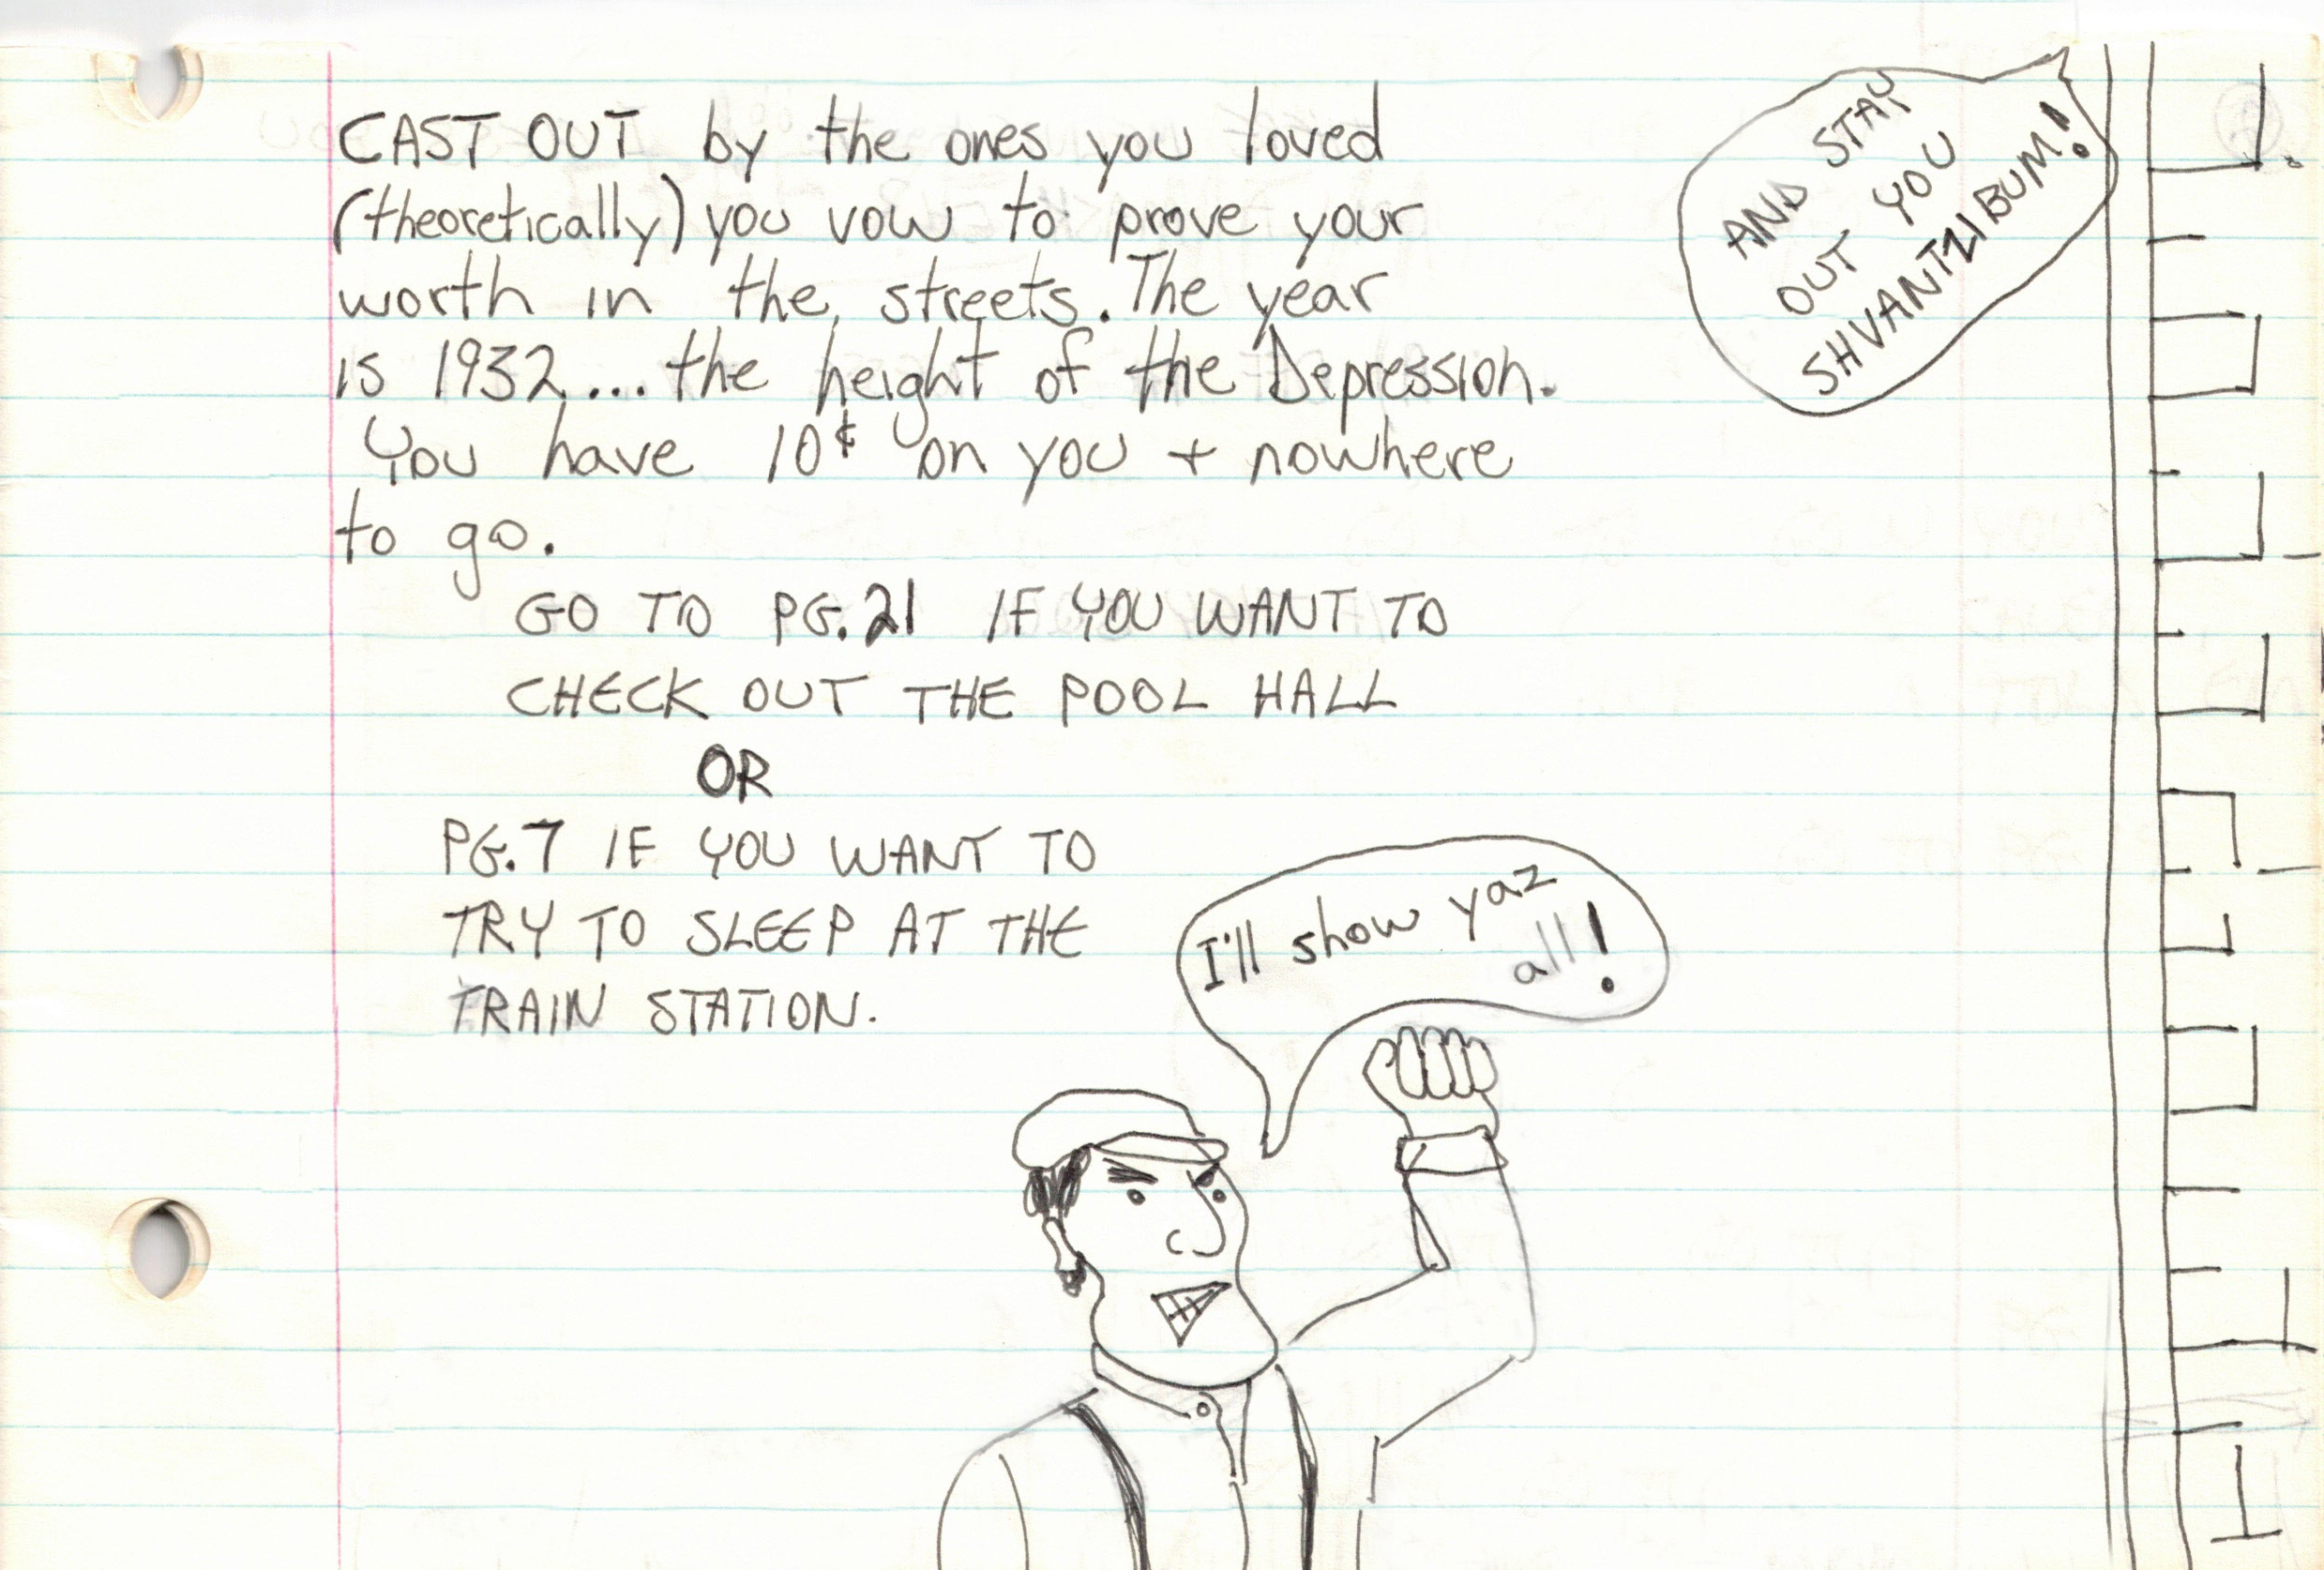 CAST OUT by the ones you loved
(theoretically) you vow to prove your
worth in the streets. The year
is 1932... the height of the Depression.
You have 10¢ on you + nowhere
to go.
GO TO PG.21 IF YOU WANT TO
CHECK OUT THE POOL HALL
OR
PG.7 IF YOU WANT TO
TRY TO SLEEP AT THE
TRAIN STATION.
AND STAY
OUT YOU
SHVANTZIBUM!
I'll show yaz
all!